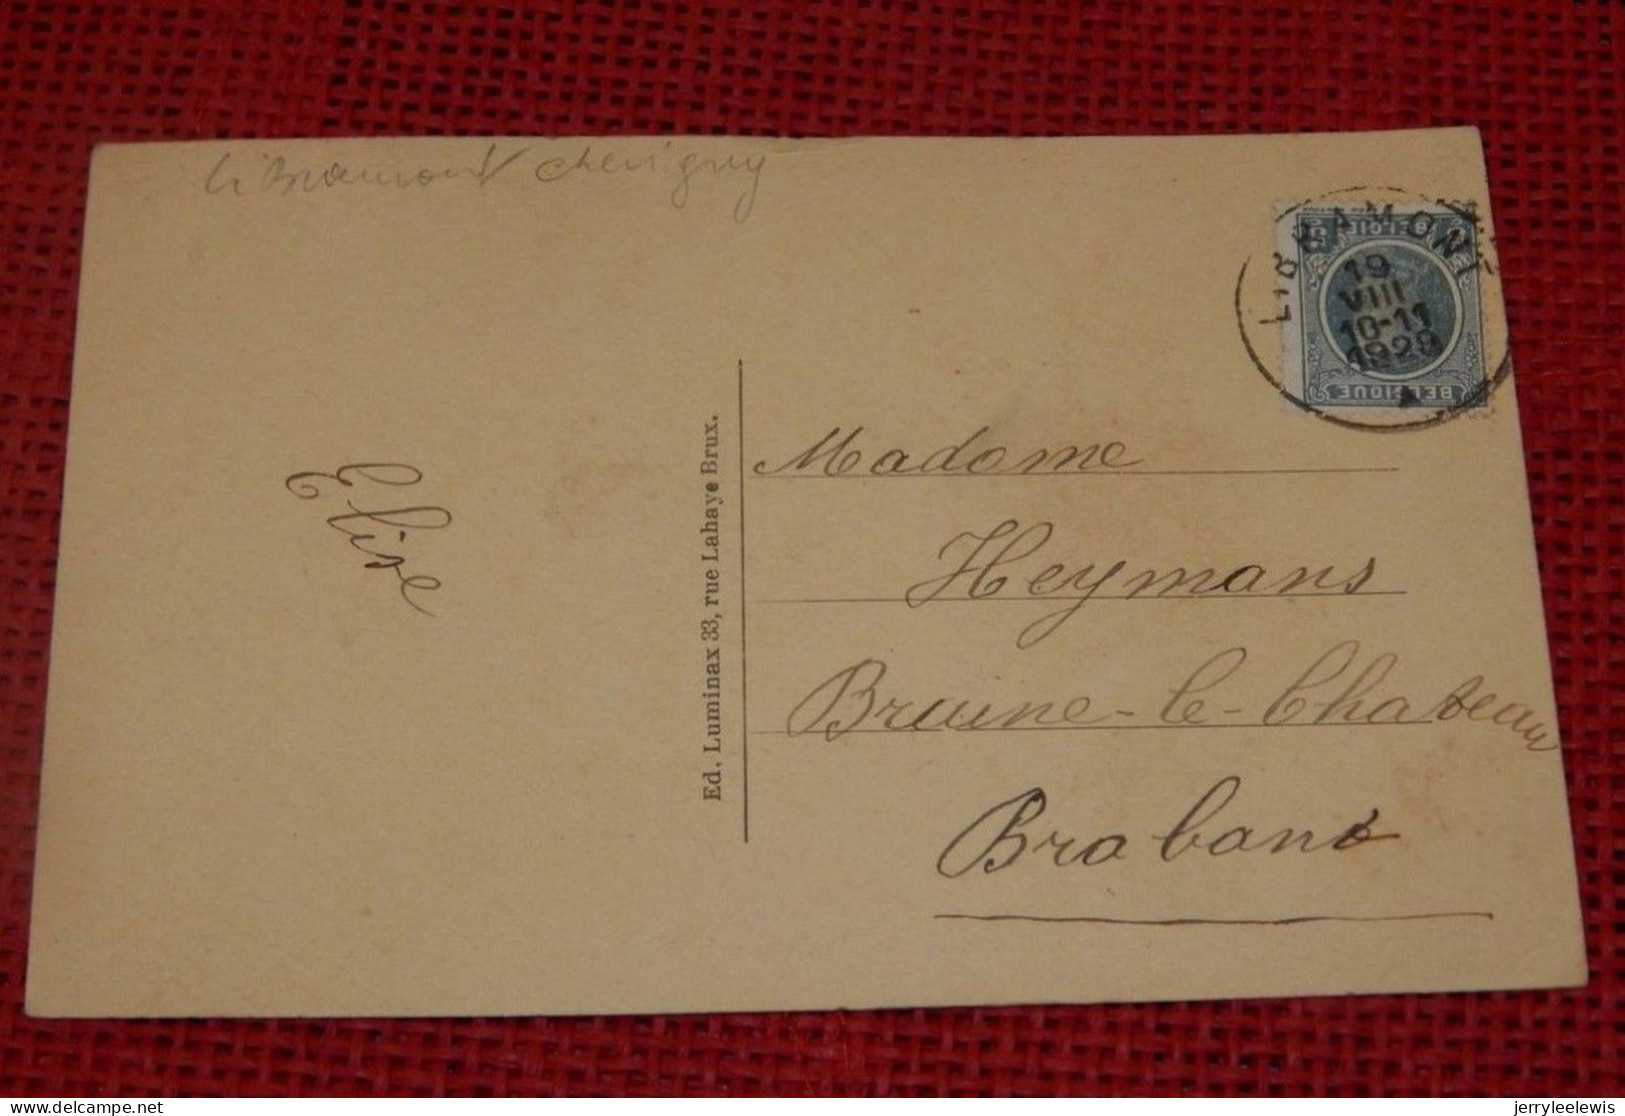 Libramont Chevigny
LIBRAMONT
19
VIII
10-11
1929
BELGIË
BELGIQUE
Elise
Ed. Luminax 33, rue Lahaye Brux.
Madame
Heymans
Braine-le-Chateau
Brabant
delcampe.net
jerryleelewis